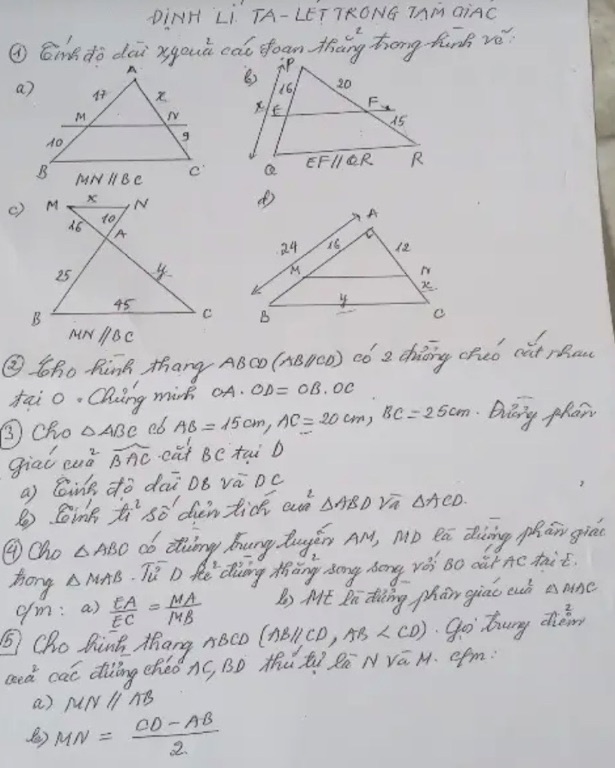 ĐỊNH LÍ TA-LÉT TRONG TAM GIÁC
① Tính độ dài x, y của các đoạn thẳng trong hình vẽ:
a)
A
17
x
M
N
10
9
B
C
MN // BC
b)
P
16
20
x
E
F
15
Q
R
EF // QR
c)
M
x
N
16
10
A
25
y
B
45
C
MN // BC
d)
A
24
16
12
M
N
x
B
y
C
② Cho hình thang ABCD (AB//CD) có 2 đường chéo cắt nhau
tại O. Chứng minh OA. OD = OB. OC
3 Cho △ABC có AB = 15cm, AC = 20cm, BC = 25cm. Đường phân
giác của BAC cắt BC tại D
a) Tính độ dài DB và DC
b) Tính tỉ số diện tích của △ABD và △ACD.
④ Cho △ABC có đường trung tuyến AM, MD là đường phân giác
trong △MAB. Từ D kẻ đường thẳng song song với BC cắt AC tại E.
c/m: a) EA/EC = MA/MB b) ME là đường phân giác của △MAC
5 Cho hình thang ABCD (AB//CD, AB < CD). Gọi trung điểm
của các đường chéo AC, BD thứ tự là N và M. c/m:
a) MN // AB
b) MN = CD - AB / 2